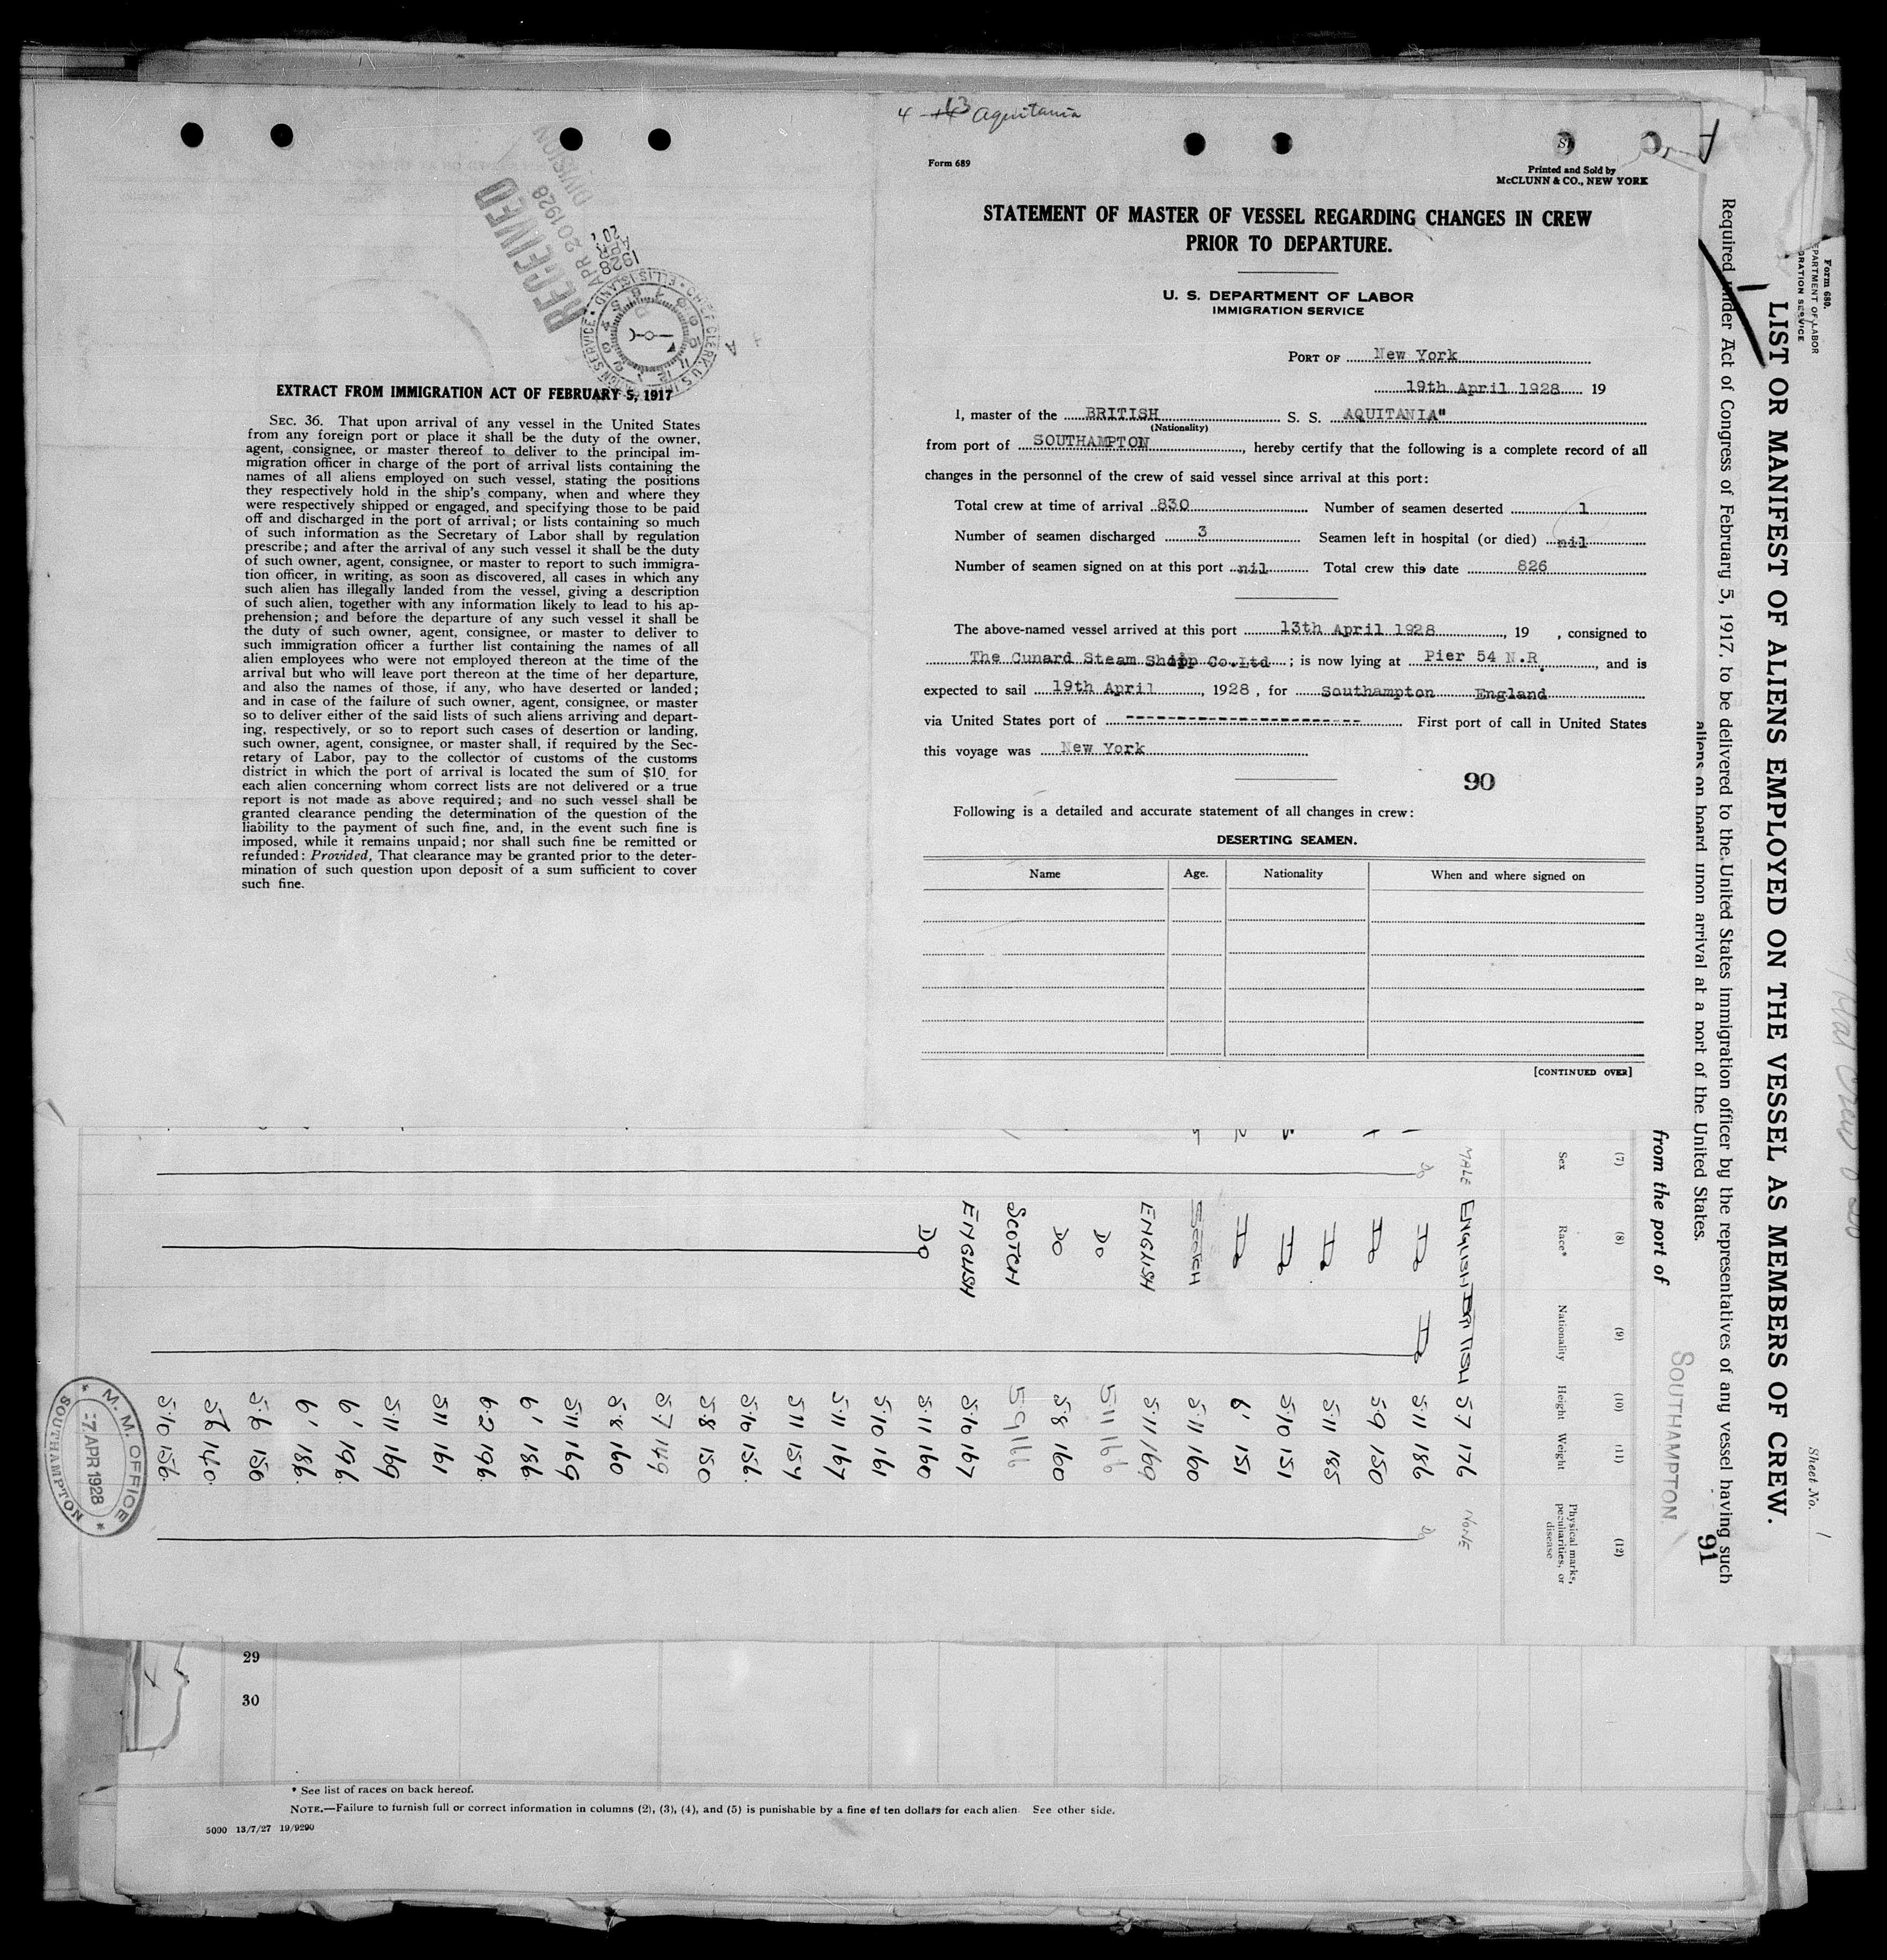 4 13 Aquitania
Form 689
Printed and Sold by
McCLUNN & CO., NEW YORK
STATEMENT OF MASTER OF VESSEL REGARDING CHANGES IN CREW
PRIOR TO DEPARTURE.
U. S. DEPARTMENT OF LABOR
IMMIGRATION SERVICE
PORT OF New York
19th April 1928 19
I, master of the BRITISH S. S. AQUITANIA"
(Nationality)
from port of SOUTHAMPTON, hereby certify that the following is a complete record of all
changes in the personnel of the crew of said vessel since arrival at this port:
Total crew at time of arrival 830 Number of seamen deserted 1
Number of seamen discharged 3 Seamen left in hospital (or died) nil
Number of seamen signed on at this port nil Total crew this date 826
The above-named vessel arrived at this port 13th April 1928, 19 , consigned to
The Cunard Steam Shipp Co.Ltd; is now lying at Pier 54 N.R., and is
expected to sail 19th April, 1928, for Southampton England
via United States port of ------------------------ First port of call in United States
this voyage was New York
90
Following is a detailed and accurate statement of all changes in crew:
DESERTING SEAMEN.
Name Age. Nationality When and where signed on
[CONTINUED OVER]
RECEIVED
APR 20 1928
DIVISION
1928
APR
20
CHIEF CLERK U.S. IMMIGRATION SERVICE • ELLIS ISLAND •
EXTRACT FROM IMMIGRATION ACT OF FEBRUARY 5, 1917
SEC. 36. That upon arrival of any vessel in the United States
from any foreign port or place it shall be the duty of the owner,
agent, consignee, or master thereof to deliver to the principal im-
migration officer in charge of the port of arrival lists containing the
names of all aliens employed on such vessel, stating the positions
they respectively hold in the ship's company, when and where they
were respectively shipped or engaged, and specifying those to be paid
off and discharged in the port of arrival; or lists containing so much
of such information as the Secretary of Labor shall by regulation
prescribe; and after the arrival of any such vessel it shall be the duty
of such owner, agent, consignee, or master to report to such immigra-
tion officer, in writing, as soon as discovered, all cases in which any
such alien has illegally landed from the vessel, giving a description
of such alien, together with any information likely to lead to his ap-
prehension; and before the departure of any such vessel it shall be
the duty of such owner, agent, consignee, or master to deliver to
such immigration officer a further list containing the names of all
alien employees who were not employed thereon at the time of the
arrival but who will leave port thereon at the time of her departure,
and also the names of those, if any, who have deserted or landed;
and in case of the failure of such owner, agent, consignee, or master
so to deliver either of the said lists of such aliens arriving and depart-
ing, respectively, or so to report such cases of desertion or landing,
such owner, agent, consignee, or master shall, if required by the Sec-
retary of Labor, pay to the collector of customs of the customs
district in which the port of arrival is located the sum of $10 for
each alien concerning whom correct lists are not delivered or a true
report is not made as above required; and no such vessel shall be
granted clearance pending the determination of the question of the
liability to the payment of such fine, and, in the event such fine is
imposed, while it remains unpaid; nor shall such fine be remitted or
refunded: Provided, That clearance may be granted prior to the deter-
mination of such question upon deposit of a sum sufficient to cover
such fine.
Form 680.
DEPARTMENT OF LABOR
GRATION SERVICE
Sheet No. 1
LIST OR MANIFEST OF ALIENS EMPLOYED ON THE VESSEL AS MEMBERS OF CREW.
Required under Act of Congress of February 5, 1917, to be delivered to the United States immigration officer by the representatives of any vessel having such
aliens on board upon arrival at a port of the United States.
91
from the port of SOUTHAMPTON.
(7) (8) (9) (10) (11) (12)
Sex Race* Nationality Height Weight Physical marks, peculiarities, or disease
MALE ENGLISH BRITISH 5 7 176 NONE
Do Do Do 5 11 186 Do
Do 5 9 150
Do 5 11 185
Do 5 10 151
Do 6' 151
SCOTCH 5 11 160
ENGLISH 5 11 169
Do 5 11 166
Do 5 8 160
SCOTCH 5 9 166
ENGLISH 5 10 167
Do 5 11 160
5 10 161
5 11 167
5 11 154
5 10 156
5 8 150
5 7 149
5 8 160
5 11 169
6' 186
6 2 196
5 11 161
5 11 169
6' 196
6' 186
5 6 150
5 6 140
5 10 156
M. M. OFFICE
-7 APR 1928
SOUTHAMPTON
29
30
* See list of races on back hereof.
NOTE.—Failure to furnish full or correct information in columns (2), (3), (4), and (5) is punishable by a fine of ten dollars for each alien. See other side.
5000 13/7/27 19/9290